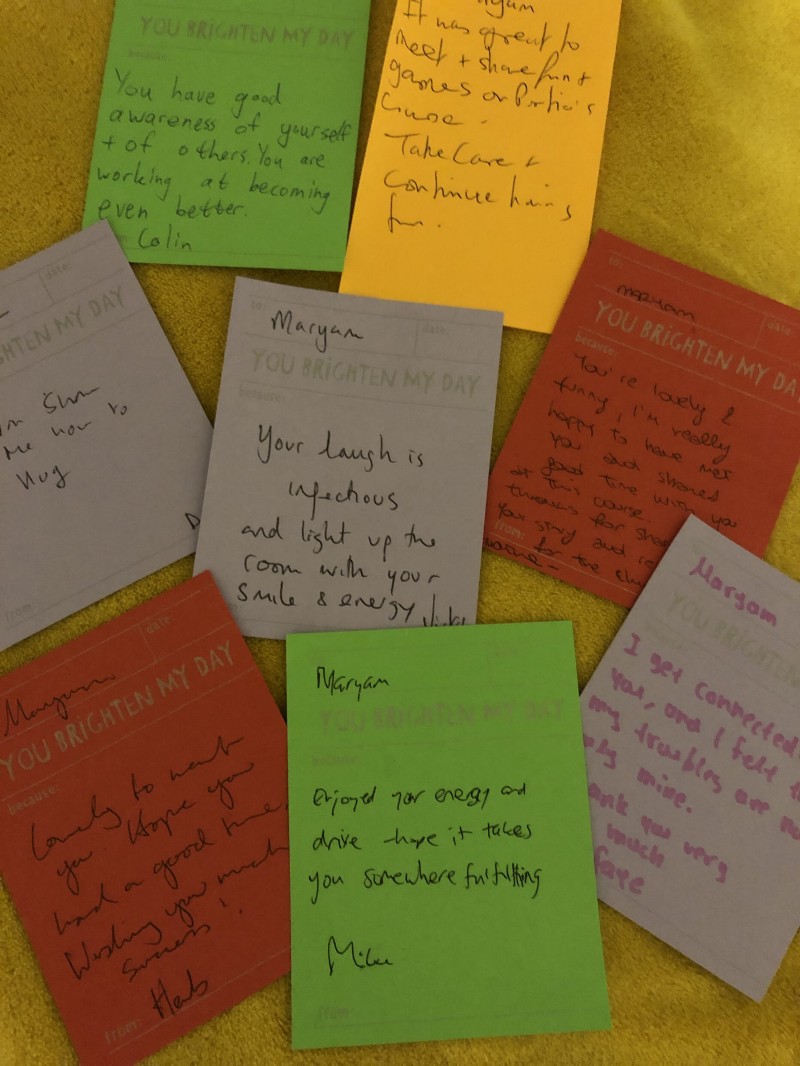 YOU BRIGHTEN MY DAY
because:
You have good
awareness of yourself
+ of others. You are
working at becoming
even better.
Colin
It was great to
meet + share fun +
games on Portia's
Take Care +
Continue
fun.
date:
HTEN MY DAY
me how to
Hug
from
to:
date:
Maryam
YOU BRIGHTEN MY DAY
because:
Your laugh is
infectious
and light up the
room with your
smile & energy
to:
date
maryam
YOU BRIGHTEN MY DA
because:
You're lovely &
funny, I'm really
happy to have met
you and shared
good time with you
at this course.
thanks for
your story and
from:
for the
Maryam
YOU BRIGHTEN
I get connected
you, and I felt
my troubles are no
mine.
ank you very
much
date
YOU BRIGHTEN MY DAY
because:
Lovely to meet
you Hope you
had a good time.
Wishing you much
success!
Herb
from:
Maryam
YOU BRIGHTEN MY DAY
because
Enjoyed your energy and
drive - hope it takes
you somewhere fulfilling
Mike
from: